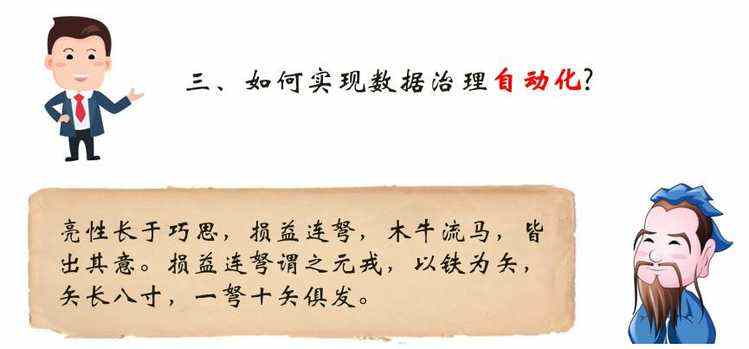 三、如何实现数据治理自动化?
亮性长于巧思，损益连弩，木牛流马，皆
出其意。损益连弩谓之元戎，以铁为矢，
矢长八寸，一弩十矢俱发。